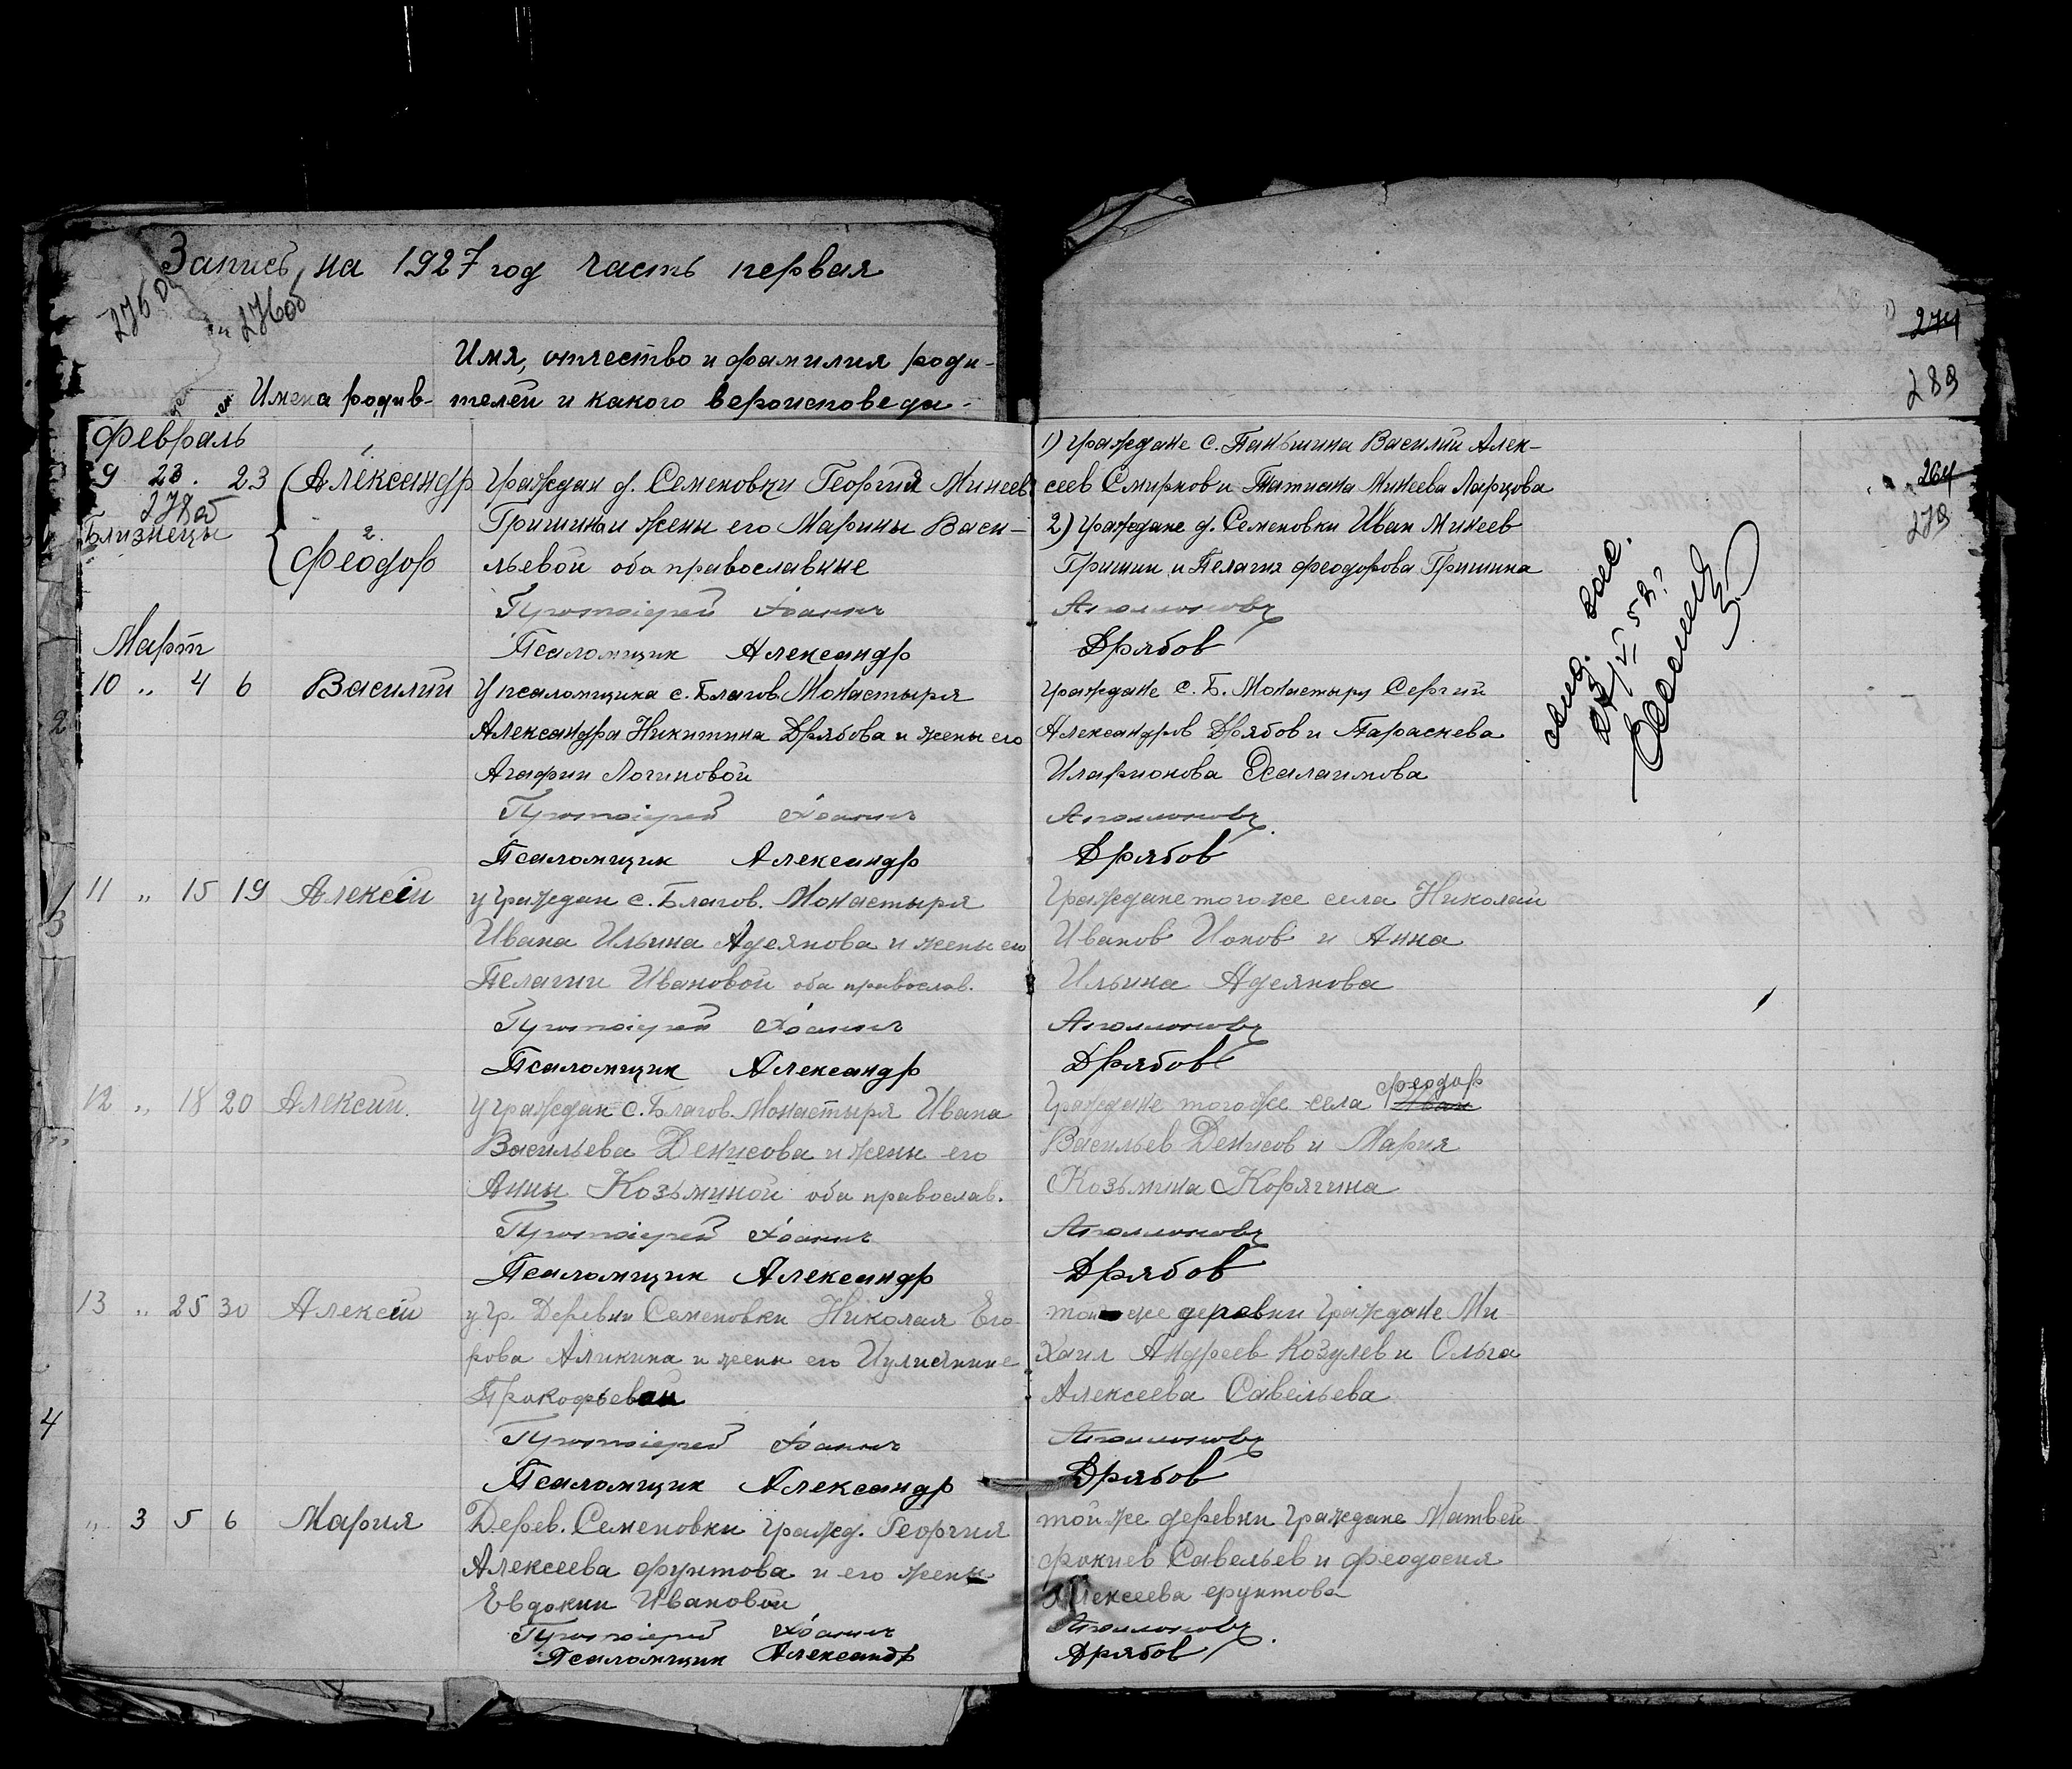 Запись на 1927 год часть первая
276об
Имя, отчество и фамилия роди-
Имена родив- телей и какого вероисповеда-
274
289
Февраль
9 23. 23 1. Александр Граждан д. Семеновки Георгия Минеев
278об
Близнецы 2. Феодор Гришина и жены его Марины Васи-
льевой оба православные
Протоіерей Іоаннъ
Псаломщик Александр
1) Граждане с. Паньшина Василий Алек-
сеев Смирнов и Татиана Минеева Ларцова
2) Граждане д. Семеновки Иван Минеев
Гришин и Пелагия Феодорова Гришина
Аполлоновъ
Дрябов
264
279
Март
10 " 4 6 Василий У псаломщика с. Благов. Монастыря
Александра Никитина Дрябова и жены его
Агафии Логиновой
Протоіерей Іоаннъ
Псаломщик Александр
Граждане с. Б. Монастыря Сергий
Александров Дрябов и Параскева
Иларионова
Аполлоновъ
Дрябов
11 " 15 19 Алексій у Граждан с. Благов. Монастыря
Ивана Ильина Адеянова и жены его
Пелагии Ивановой оба православ.
Протоіерей Іоаннъ
Псаломщик Александр
Граждане того же села Николай
Иванов Ионов и Анна
Ильина Адеянова
Аполлоновъ
Дрябов
12 " 18 20 Алексий. У граждан с. Благов. Монастыря Ивана
Васильева Денисова и жены его
Анны Козьминой оба православ.
Протоіерей Іоаннъ
Псаломщик Александр
Феодор
Граждане того же села Иван
Васильев Денисов и Мария
Козьмина Корягина
Аполлоновъ
Дрябов
13 " 25 30 Алексій у Гр. Деревни Семеновки Николая Его-
рова Аликина и жены его Иулиании
Прокофьевой
Протоіерей Іоаннъ
Псаломщик Александр
той же деревни Граждане Ми-
хаил Андреев Козулев и Ольга
Алексеева Савельева
Аполлоновъ
Дрябов
" 3 5 6 Мария Дерев. Семеновки Гражд. Георгия
Алексеева Фунтова и его жены
Евдокии Ивановой
Протоіерей Іоаннъ
Псаломщик Александр
той же деревни Граждане Матвей
Фокиев Савельев и Феодосия
Алексеева Фунтова
Аполлоновъ
Дрябов
2
3
4